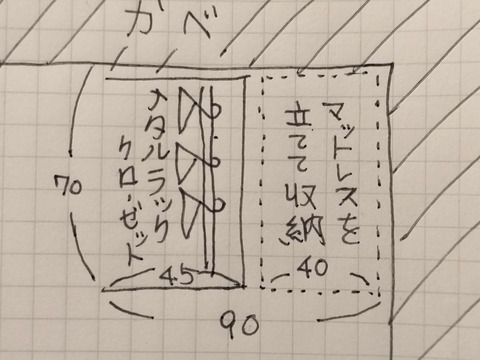 カベ
マットレスを
立てて収納
メタルラック
クローゼット
70
45
40
90